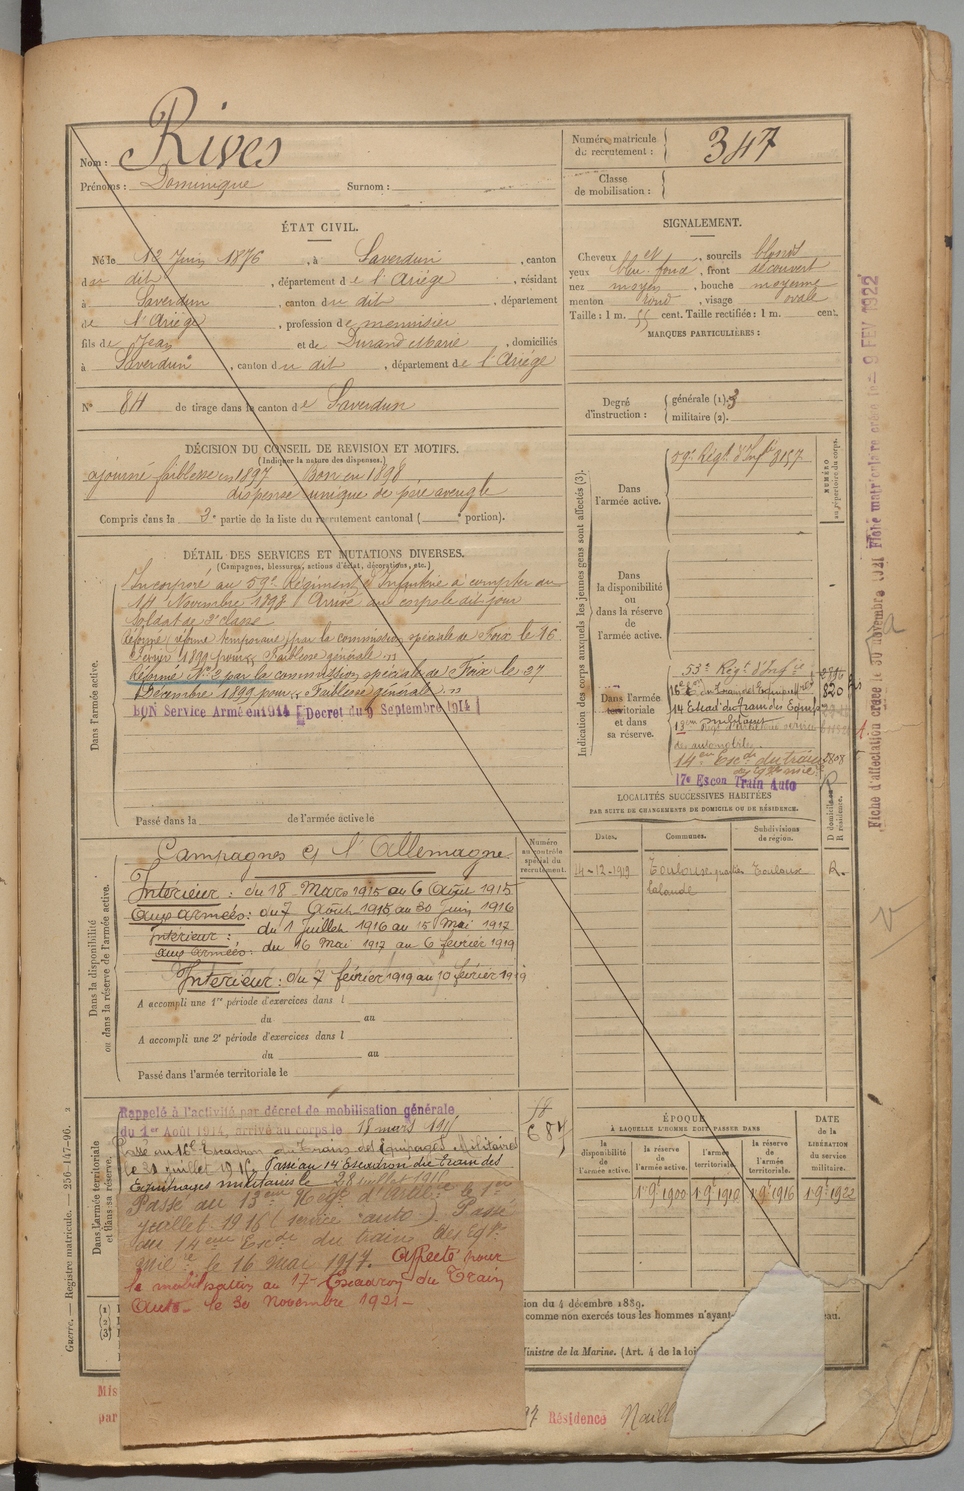 Nom : Rives
Prénoms : Dominique Surnom :
Numéro matricule du recrutement : 347
Classe de mobilisation :
ÉTAT CIVIL.
Né le 12 Juin 1876, à Saverdun, canton
du dit, département de l'Ariége, résidant
à Saverdun, canton du dit, département
de l'Ariége, profession de menuisier
fils de Jean et de Durand Marie, domiciliés
à Saverdun, canton du dit, département de l'Ariége
N° 84 de tirage dans le canton de Saverdun
SIGNALEMENT.
Cheveux et, sourcils blonds
yeux bleu foncé, front découvert
nez moyen, bouche moyenne
menton rond, visage ovale
Taille : 1 m. 55 cent. Taille rectifiée : 1 m. cent.
MARQUES PARTICULIÈRES :
Degré d'instruction : générale (1). 3
militaire (2).
DÉCISION DU CONSEIL DE REVISION ET MOTIFS.
(Indiquer la nature des dispenses.)
ajourné faiblesse en 1897 Bon en 1898
dispense unique de père aveugle
Compris dans la 3e partie de la liste du recrutement cantonal ( e portion).
DÉTAIL DES SERVICES ET MUTATIONS DIVERSES.
(Campagnes, blessures, actions d'éclat, décorations, etc.)
Dans l'armée active.
Incorporé au 59e Régiment d'Infanterie à compter du
14 Novembre 1898 Arrivé au corps le dit jour
Soldat de 2e classe
Réformé (réforme temporaire) par la commission spéciale de Foix le 16
Février 1899 pour « Faiblesse générale »
Réformé N° 2 par la commission spéciale de Foix le 27
Décembre 1899 pour « Faiblesse générale »
BON Service Armé en 1914 [Decret du 9 Septembre 1914]
Passé dans la de l'armée active le
Indication des corps auxquels les jeunes gens sont affectés (3).
NUMÉRO au répertoire du corps.
Dans l'armée active.
59e Régt d'Infie 8157
Dans la disponibilité ou dans la réserve de l'armée active.
Dans l'armée territoriale et dans sa réserve.
53e Régt d'Infie
16e Eon du Train des Equipages 820
14 Escad. du Train des Equip.
14eme Esc. du train 2808
17e Escon Train Auto
LOCALITÉS SUCCESSIVES HABITÉES
PAR SUITE DE CHANGEMENTS DE DOMICILE OU DE RÉSIDENCE.
D domicile ou R résidence.
Dates. Communes. Subdivisions de région.
14-12-1919 Toulouse Toulouse R.
Lalande
Dans la disponibilité ou dans la réserve de l'armée active.
Numéro au contrôle spécial du recrutement.
Campagnes c/ l'Allemagne
Intérieur : du 18 Mars 1915 au 6 Août 1915
aux armées : du 7 Août 1915 au 30 Juin 1916
Intérieur : du 1 Juillet 1916 au 15 Mai 1917
aux armées : du 16 Mai 1917 au 6 février 1919
Interieur : du 7 février 1919 au 10 février 1919
A accompli une 1re période d'exercices dans l
du au
A accompli une 2e période d'exercices dans l
du au
Passé dans l'armée territoriale le
Dans l'armée territoriale et dans sa réserve.
Rappelé à l'activité par décret de mobilisation générale
du 1er Août 1914, arrivé au corps le 18 mars 1915
Passé au 16e Escadron du Train des Equipages Militaires
le 21 juillet 1915. Passé au 14 Escadron du Train des
Equipages militaires le 28 juillet 1915
Passé au 13eme Regt d'Artillie le 1er
juillet 1916 (service auto). Passé
au 14eme Escde du train des Eqps
milre le 16 mai 1917. Affecté pour
la mobilisation au 17e Escadron du Train
Auto le 30 Novembre 1921-
ÉPOQUE
À LAQUELLE L'HOMME DOIT PASSER DANS
la disponibilité de l'armée active.
la réserve de l'armée active.
l'armée territoriale.
la réserve de l'armée territoriale.
DATE de la LIBÉRATION du service militaire.
1er 9e 1900 1er 9e 1910 1er 9e 1916 1er 9e 1922
tion du 4 décembre 1889.
comme non exercés tous les hommes n'ayant
eau.
Ministre de la Marine. (Art. 4 de la loi
Mis
par
Résidence Noaill
Guerre. — Registre matricule. — 256-147-96. 2
Fiche d'affectation créée le 30 Novembre 1921 Fiche matriculaire créée le - 9 FEV 1922